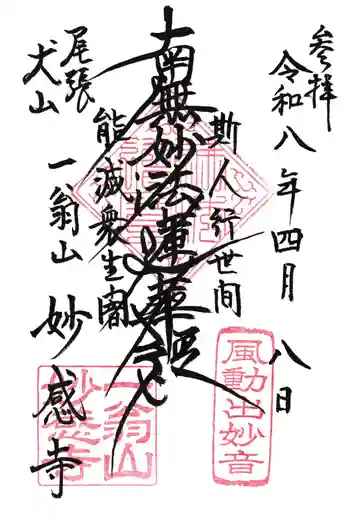 参拝
令和八年四月八日
斯人行世間
南無妙法蓮華経
能滅衆生闇
尾張
犬山
一翁山
妙感寺
風動出妙音
一翁山
妙感寺